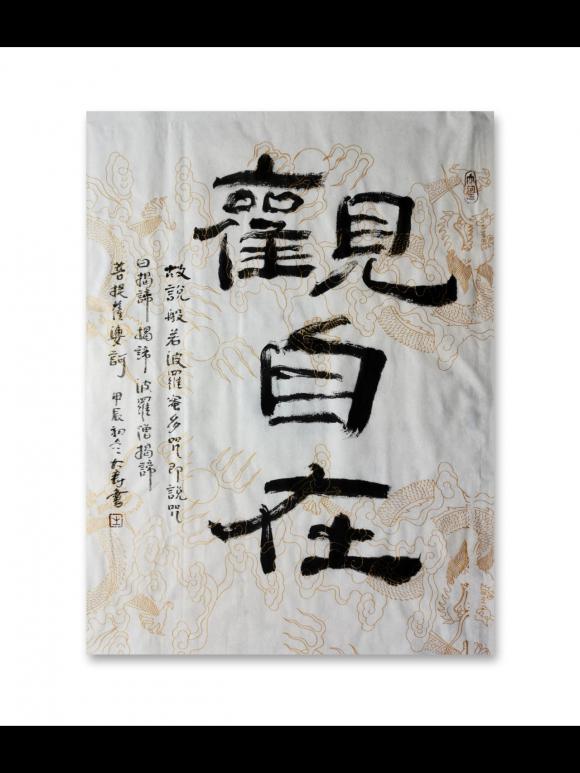 觀自在
故說般若波羅蜜多咒即說咒
曰揭諦揭諦波羅僧揭諦
菩提薩婆訶 甲辰初冬大壽書